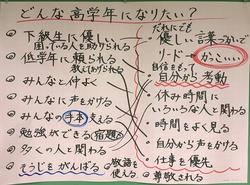 どんな高学年になりたい?
下級生に優しい
困っている人を助けられる
低学年に頼られる
教えてあげられる
みんなと仲よく
みんなに声をかける
みんなの手本 える
勉強ができる 宿題
多くの人と関わる
そうじをがんばる
敬語を
使える
だれにでも
優しい言葉づかいで
リード
かっこいい
自信をもって
自分から考動
休み時間に
いろいろな人と関わる
時間をよく見る
自分から声をかける
仕事を優先
尊敬される